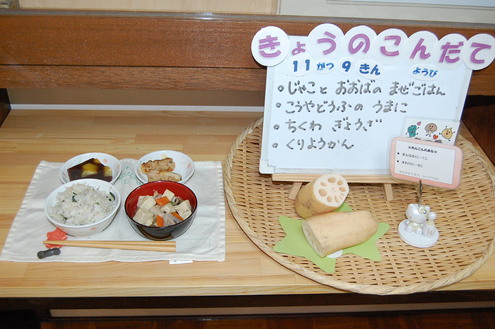 きょうのこんだて
11 がつ 9 きん ようび
じゃこと おおばの まぜごはん
こうやどうふの うまに
ちくわ ぎょうざ
くりようかん